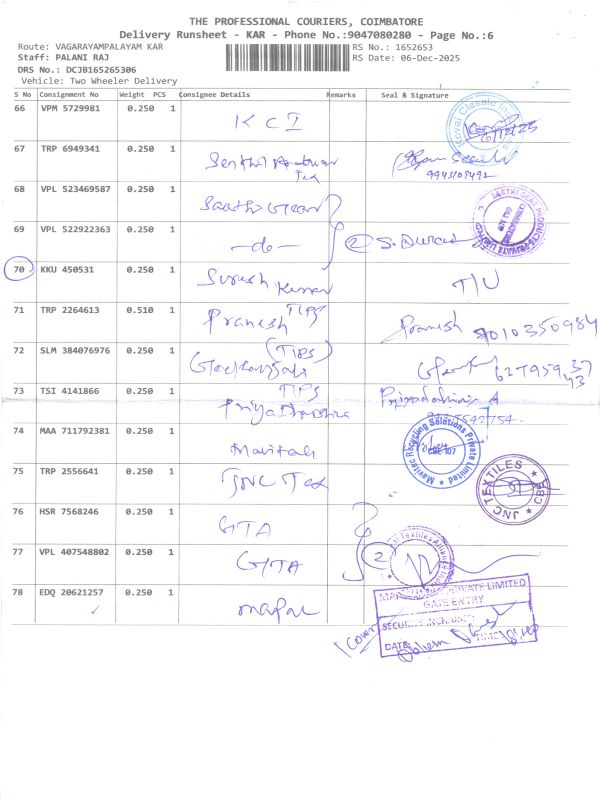 THE PROFESSIONAL COURIERS, COIMBATORE
Delivery Runsheet - KAR - Phone No.:9047080280 - Page No.:6
Route: VAGARAYAMPALAYAM KAR RS No.: 1652653
Staff: PALANI RAJ RS Date: 06-Dec-2025
DRS No.: DCJB165265306
Vehicle: Two Wheeler Delivery
S No Consignment No Weight PCS Consignee Details Remarks Seal & Signature
66 VPM 5729981 0.250 1 KCI
67 TRP 6949341 0.250 1 Tex
9943108492
68 VPL 523469587 0.250 1
69 VPL 522922363 0.250 1 -do- 2 S.
70 KKU 450531 0.250 1 Suresh Kumar
71 TRP 2264613 0.510 1 Pranesh TIPS Pranesh
72 SLM 384076976 0.250 1 (TIPS)
73 TSI 4141866 0.250 1 TIPS
74 MAA 711792381 0.250 1
Mavitec Recycling Solutions Private Limited
75 TRP 2556641 0.250 1 JNC Tex
JNC TEXTILES CBE
76 HSR 7568246 0.250 1 GTA
77 VPL 407548802 0.250 1 GTA 2
78 EDQ 20621257 0.250 1
PRIVATE LIMITED
GATE ENTRY
SECURITY
DATE TIME